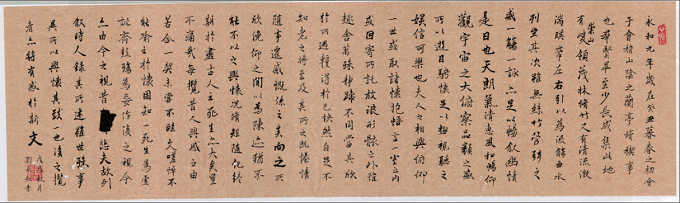 永和九年歲在癸丑暮春之初會
于會稽山陰之蘭亭脩禊事
也羣賢畢至少長咸集此地
有崇山峻領茂林脩竹又有清流激
湍暎帶左右引以為流觴曲水
列坐其次雖無絲竹管弦之
盛一觴一詠亦足以暢叙幽情
是日也天朗氣清惠風和暢仰
觀宇宙之大俯察品類之盛
所以遊目騁懷足以極視聽之
娛信可樂也夫人之相與俯仰
一世或取諸懷抱悟言一室之內
或因寄所託放浪形骸之外雖
趣舍萬殊靜躁不同當其欣
於所遇暫得於己快然自足不
知老之將至及其所之既惓情
隨事遷感慨係之矣向之所
欣俛仰之間以為陳迹猶不
能不以之興懷況脩短隨化終
期於盡古人云死生亦大矣豈
不痛哉每攬昔人興感之由
若合一契未嘗不臨文嗟悼不
能喻之於懷固知一死生為虛
誕齊彭殤為妄作後之視今
亦由今之視昔悲夫故列
敘時人錄其所述雖世殊事
異所以興懷其致一也後之攬
者亦將有感於斯文